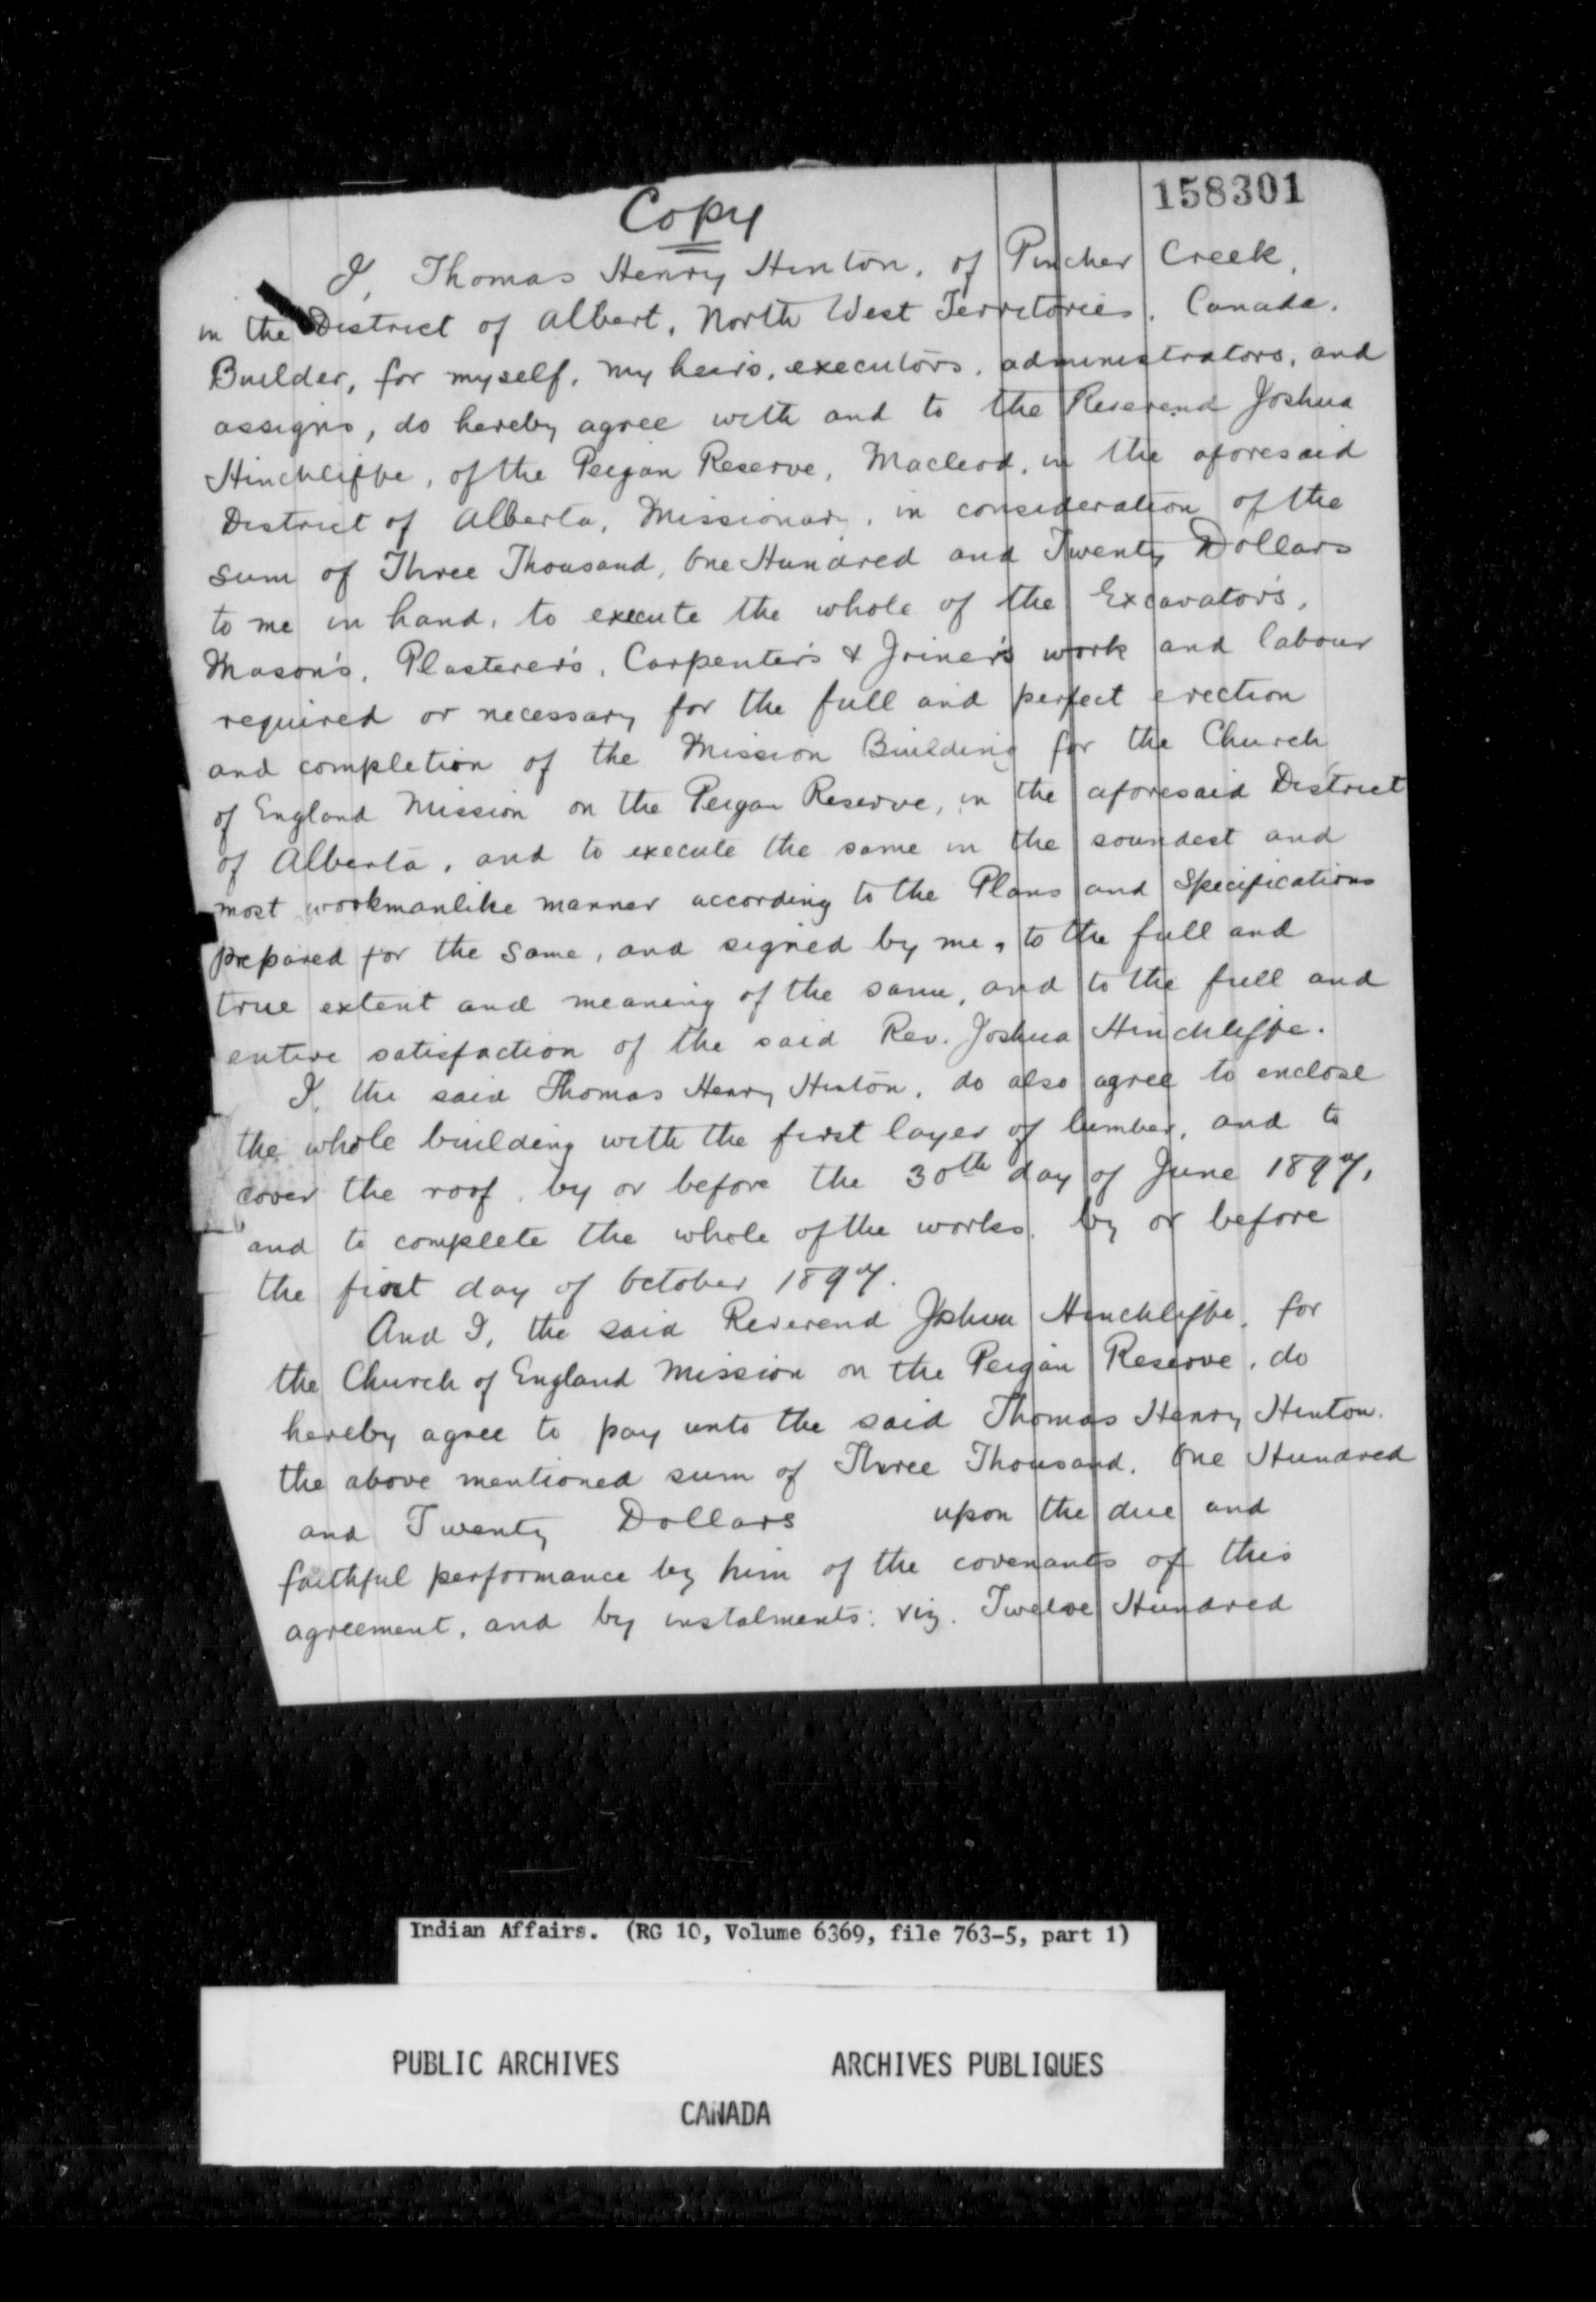 158301
Copy
I, Thomas Henry Hinton, of Pincher Creek,
in the District of Albert, North West Territories, Canada,
Builder, for myself, my heirs, executors, administrators, and
assigns, do hereby agree with and to the Reverend Joshua
Hinchliffe, of the Peigan Reserve, Macleod, in the aforesaid
District of Alberta, Missionary, in consideration of the
sum of Three Thousand, One Hundred and Twenty Dollars
to me in hand, to execute the whole of the Excavator's,
Mason's, Plasterer's, Carpenter's & Joiner's work and labour
required or necessary for the full and perfect erection
and completion of the Mission Building for the Church
of England Mission on the Peigan Reserve, in the aforesaid District
of Alberta, and to execute the same in the soundest and
most workmanlike manner according to the Plans and Specifications
prepared for the same, and signed by me, to the full and
true extent and meaning of the same, and to the full and
entire satisfaction of the said Rev. Joshua Hinchliffe.
I, the said Thomas Henry Hinton, do also agree to enclose
the whole building with the first layer of lumber, and to
cover the roof, by or before the 30th day of June 1897,
and to complete the whole of the works, by or before
the first day of October 1897.
And I, the said Reverend Joshua Hinchliffe, for
the Church of England Mission on the Peigan Reserve, do
hereby agree to pay unto the said Thomas Henry Hinton,
the above mentioned sum of Three Thousand, One Hundred
and Twenty Dollars upon the due and
faithful performance by him of the covenants of this
agreement, and by instalments: viz. Twelve Hundred
Indian Affairs. (RG 10, Volume 6369, file 763-5, part 1)
PUBLIC ARCHIVES ARCHIVES PUBLIQUES
CANADA